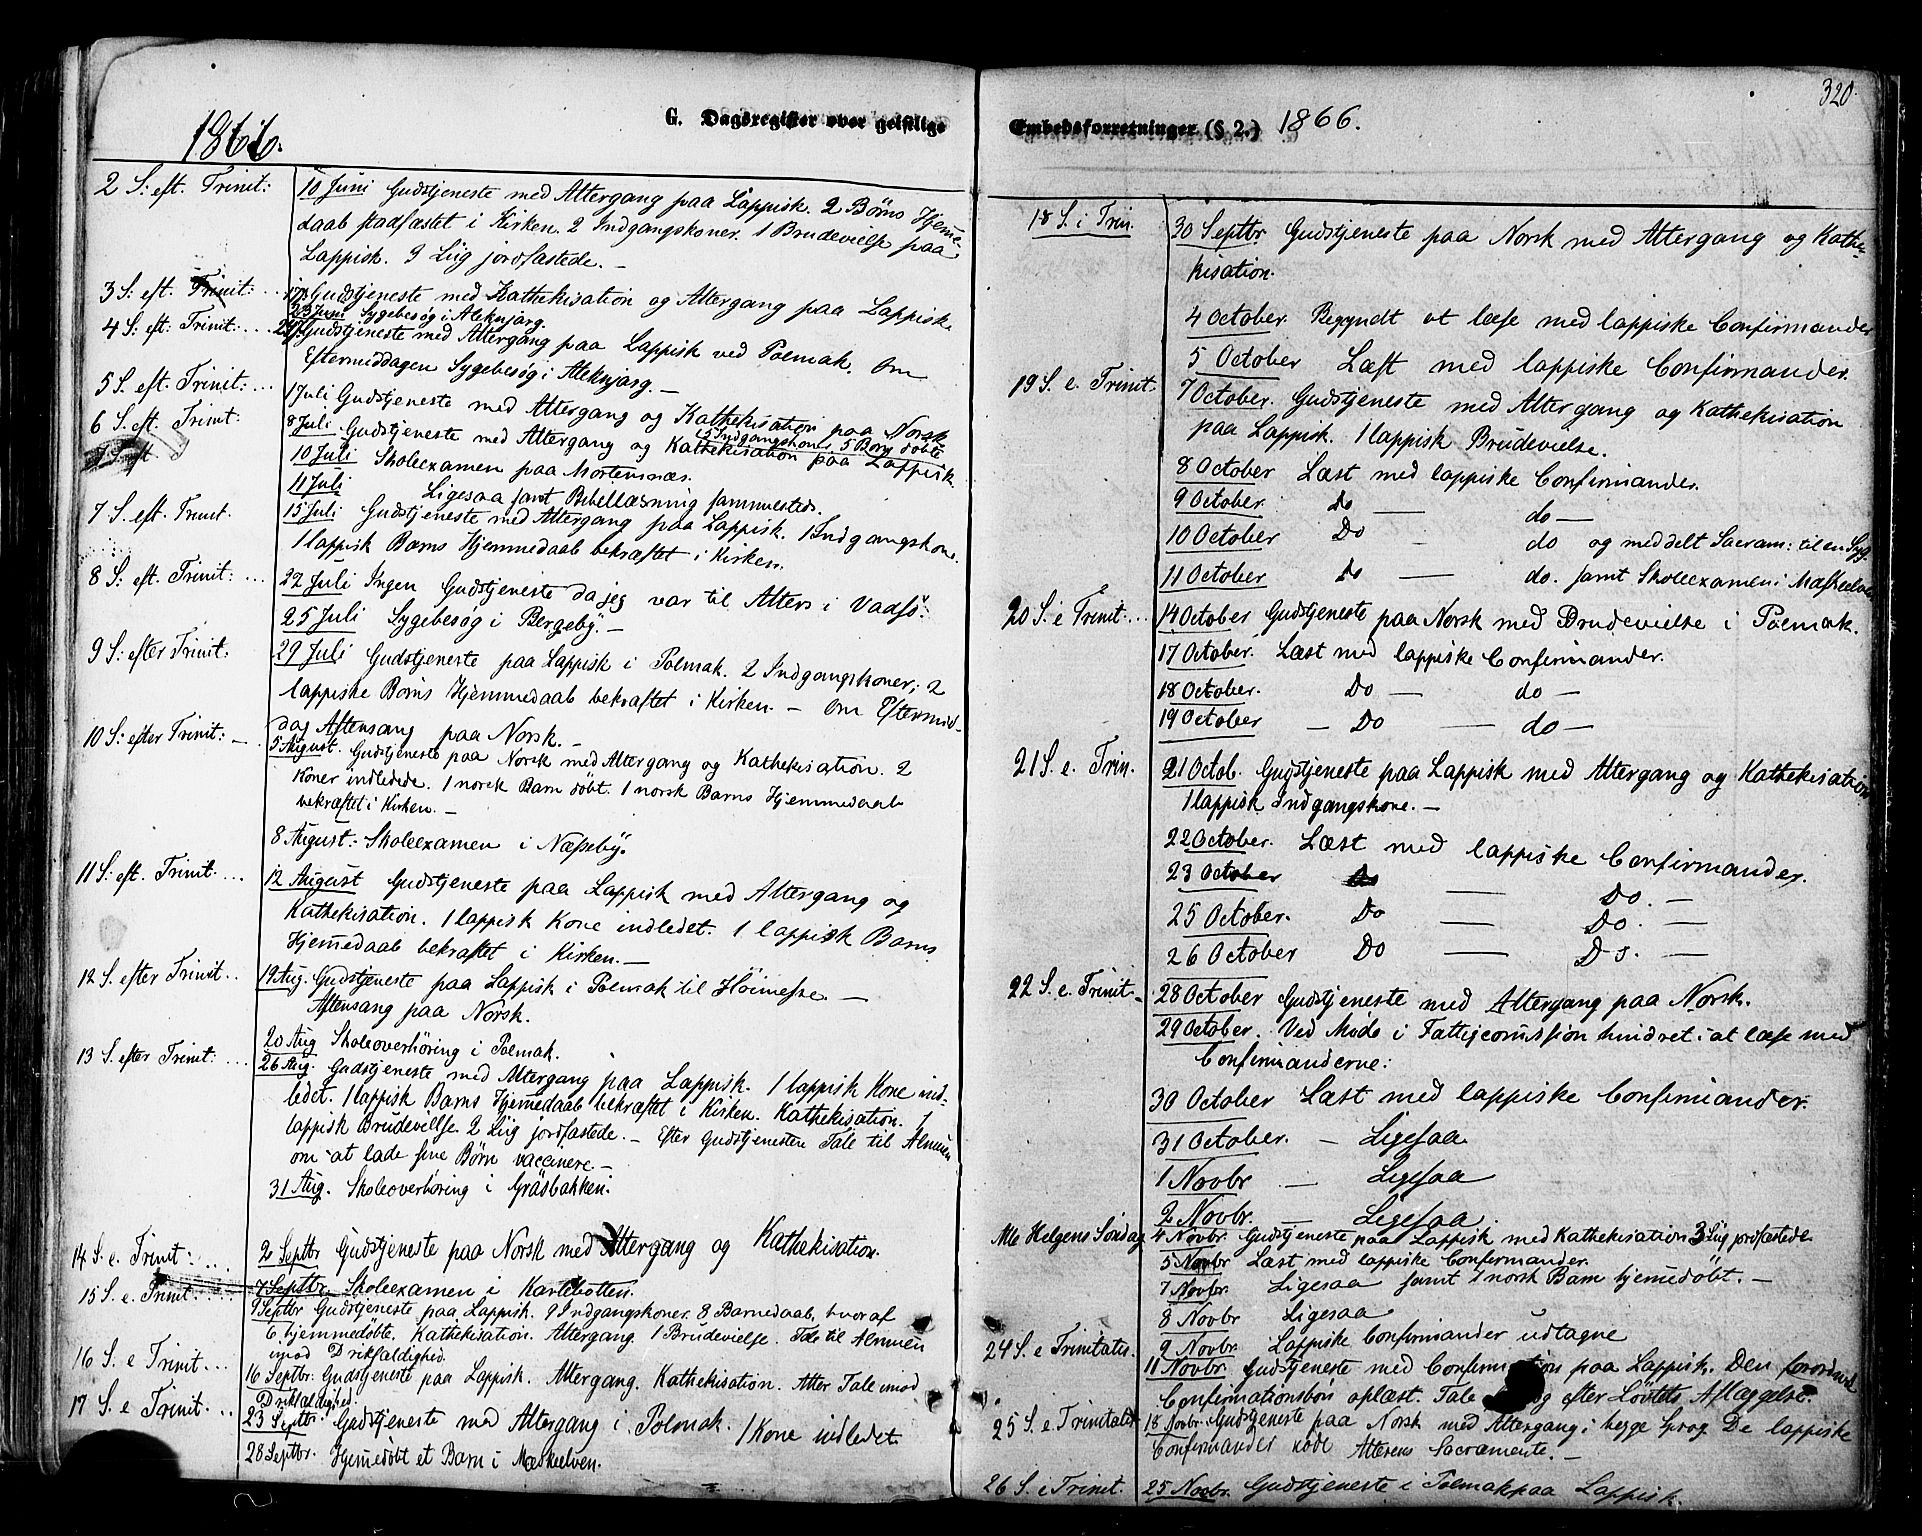 1866.
G. Dagsregister over geistlige
2 S: eft. Trinit: 10 Juni Gudstjeneste med Altergang paa Lappisk. 2 Børns Hjemme-
daab stadfæstet i Kirken. 2 Indgangskoner. 1 Brudevielse paa
Lappisk. 9 Liig jordfæstede. —
3 S: eft. Trinit: ... 17/6 Gudstjeneste med Kathekisation og Altergang paa Lappisk.
23 Juni Sygebesøg i Aleknjarg.
4 S: eft: Trinit: ... 24/6 Gudstjeneste med Altergang paa Lappisk ved Polmak. Om
Eftermiddagen Sygebesøg i Aleknjarg. —
5 S. eft. Trinit: ... 1 Juli Gudstjeneste med Altergang og Kathekisation paa Norsk
6 S. eft. Trinit: 8 Juli Gudstjeneste med Altergang og Kathekisation paa Lappisk
5 Indgangskoner 5 Børn døbte
10 Juli Skoleexamen paa Mortensnæs.
11 Juli Ligesaa samt Bibellæsning sammesteds.
7 S. eft. Trinit. 15 Juli Gudstjeneste med Altergang paa Lappisk. 1 Indgangskone.
1 lappisk Barns Hjemmedaab bekræftet i Kirken.
8 S: eft. Trinit: ... 22 Juli Ingen Gudstjeneste da jeg var til Alters i Vadsö.
25 Juli Sygebesøg i Bergeby. —
9 S: efter Trinit: 29 Juli Gudstjeneste paa Lappisk i Polmak. 2 Indgangskoner; 2
lappiske Børns Hjemmedaab bekræftet i Kirken. — Om Eftermid-
dag Aftensang paa Norsk. —
10 S: efter Trinit: — 5 August. Gudstjeneste paa Norsk med Altergang og Kathekisation. 2
Koner indledede. 1 norsk Barn döbt. 1 norsk Barns Hjemmedaab
bekræftet i Kirken. —
8 August: Skoleexamen i Næsseby.
11 S: eft. Trinit ... 12 August Gudstjeneste paa Lappisk med Altergang og
Kathekisation. 1 lappisk Kone indledet. 1 lappisk Barns
Hjemedaab bekræftet i Kirken. —
12 S. efter Trinit... 19 Aug. Gudstjeneste paa Lappisk i Polmak til Höimesse. —
Aftensang paa Norsk.
20 Aug Skoleoverhöring i Polmak.
13 S. efter Trinit: ... 26 Aug. Gudstjeneste med Altergang paa Lappisk. 1 lappisk Kone ind-
ledet. 1 lappisk Barns Hjemedaab bekræftet i Kirken. Kathekisation. 1
lappisk Brudevielse. 2 Liig jordfæstede. — Efter Gudstjenesten Tale til Almuen
om at lade sine Børn vaccinere. —
31 Aug. Skoleoverhøring i Gräsbakken.
14 S. e. Trinit: ... 2 Septbr Gudstjeneste paa Norsk med Altergang og Kathekisation.
7 Septbr Skoleexamen i Karlebotten.
15 S. e. Trinit: ... 9 Septbr Gudstjeneste paa Lappisk. 9 Indgangskoner. 8 Barnedaab, hvoraf
6 hjemmedøbte. Kathekisation. Altergang. 1 Brudevielse. Tale til Almuen
imod Drikfældighed.
16 S. e Trinit ... 16 Septbr: Gudstjeneste paa Lappisk. Altergang. Kathekisation. Atter Tale imod
Drikfældighed.
17 S. e Trinit ... 23 Septbr. Gudstjeneste med Altergang i Polmak. 1 Kone indledet
28 Septbr. Hjemedøbt et Barn i Mæskelven.
320.
Embedsforretninger (§ 2.) 1866.
18 S. i Trin. 30 Septbr Gudstjeneste paa Norsk med Altergang og Kathe-
kisation.
4 October. Begyndt at læse med lappiske Confirmander
5 October Læst med lappiske Confirmander.
19 S. e. Trinit. 7 October. Gudstjeneste med Altergang og Kathekisation
paa Lappisk. 1 lappisk Brudevielse.
8 October Læst med lappiske Confirmander.
9 October. Do — do —
10 October Do - do og meddelt Sacram: til en Syg.
11 October Do — do. samt Skoleexamen i Mæskelven
20 S. e Trinit: ... 14 October Gudstjeneste paa Norsk med Brudevielse i Polmak.
17 October. Læst med lappiske Confirmander.
18 October. Do — do —
19 October — Do — do —
21 S. e. Trin. 21 Octob. Gudstjeneste paa Lappisk med Altergang og Kathekisation
1 lappisk Indgangskone. —
22 October. Læst med lappiske Confirmander.
23 October Do — Do. —
25 October. Do — Do. —
26 October Do — Do. —
22 S. e. Trinit. 28 October Gudstjeneste med Altergang paa Norsk.
29 October. Ved Møde i Fattigcomission hindret at læse med
Confirmanderne:
30 October Læst med lappiske Confirmander.
31 October. — Ligesaa
1 Novbr — Ligesaa
2 Novbr. — Ligesaa.
Alle Helgens Søndag 4 Novbr. Gudstjeneste paa Lappisk med Kathekisation 3 Liig jordfæstede
5 Novbr Læst med lappiske Confirmander.
7 Novbr. Ligesaa samt 1 norsk Barn hjemedøbt. —
8 Novbr Ligesaa
9 Novbr. Lappiske Confirmander udtagne
24 S. e Trinitatis. 11 Novbr. Gudstjeneste med Confirmations paa Lappisk. Den forordnede
Confirmationsbøn oplæst. Tale og efter Löftets Aflæggelse.
25 S. e Trinitatis 18 Novbr. Gudstjeneste paa Norsk med Altergang i begge Sprog De lappiske
Confirmander nöde Alterens Sacramente. —
26 S. i Trinit. 25 Novbr. Gudstjeneste i Polmak paa Lappisk.